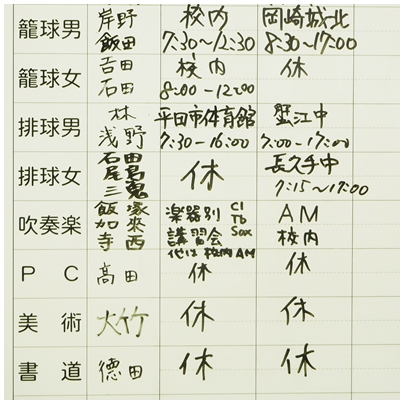 籠球男 岸野 校内 岡崎城北
飯田 7:30〜12:30 8:30〜17:00
籠球女 吉田 校内 休
石田 8:00-12:00
排球男 林 平田市体育館 蟹江中
浅野 7:30-16:00 7:00-17:00
排球女 石田 休 長久手中
尾島 7:15〜17:00
三鬼
吹奏楽 飯塚 楽器別 Cl AM
加来 Tb
寺西 講習会 Sax 校内
他は校内AM
PC 高田 休 休
美術 大竹 休 休
書道 德田 休 休